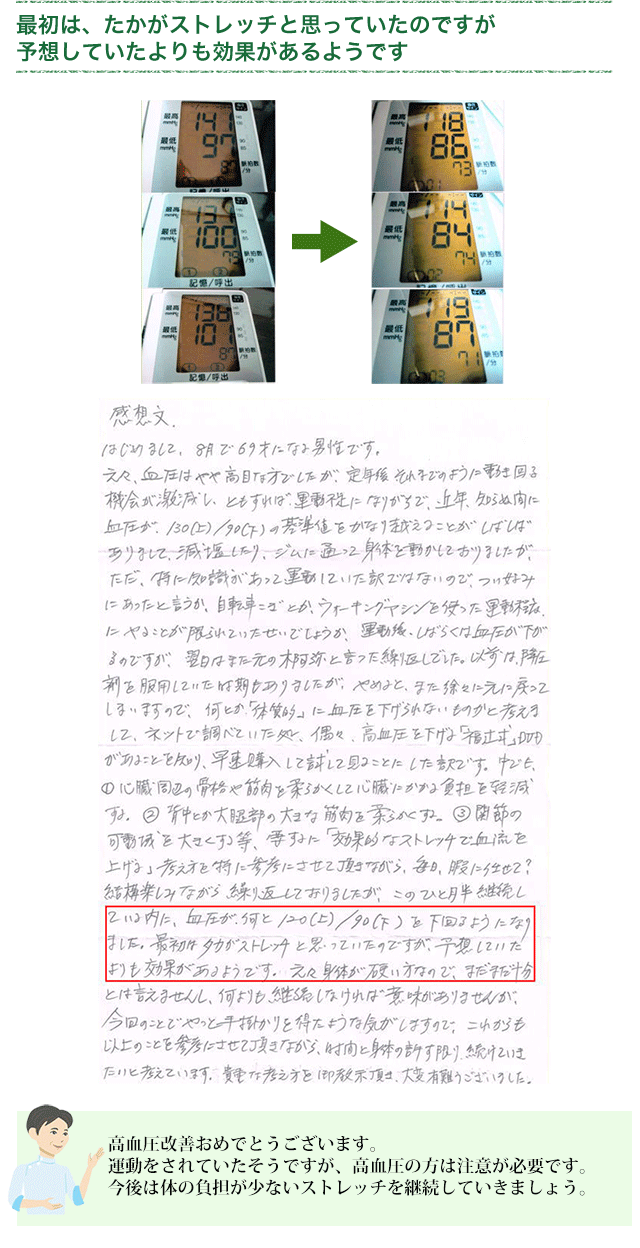 最初は、たかがストレッチと思っていたのですが
予想していたよりも効果があるようです
最高
mmHg
141
最低
mmHg
97
脈拍数
/分
87
記憶/呼出
131
最低
mmHg
100
脈拍数
/分
79
記憶/呼出
最高
mmHg
136
最低
mmHg
101
脈拍数
/分
87
記憶/呼出
最高
mmHg
118
最低
mmHg
86
脈拍数
/分
73
01
114
最低
mmHg
84
脈拍数
/分
74
02
最高
mmHg
119
最低
mmHg
87
脈拍数
/分
71
03
感想文.
はじめまして、8月で69才になる男性です。
元々、血圧はやや高目な方でしたが、定年後それまでのように動き回る
機会が激減し、ともすれば運動不足になりがちで、近年、知らぬ間に
血圧が、130(上)/90(下)の基準値をかなり越えることがしばしば
ありまして、減塩したり、ジムに通って身体を動かしておりましたが、
ただ、特に知識があって運動していた訳ではないので、つい好み
にあったと言うか、自転車こぎとか、ウォーキングマシンを使った運動程度
にやることが限られていたせいでしょうか、運動後、しばらくは血圧が下が
るのですが、翌日はまた元の木阿弥と言った繰り返しでした。以前は、降圧
剤を服用していた時期もありましたが、やめると、また徐々に元に戻って
しまいますので、何とか「体質的」に血圧を下げられないものかと考えま
して、ネットで調べていた処、偶々、高血圧を下げる「福辻式」DVD
があることを知り、早速購入して試して見ることにした訳です。中でも、
①心臓周辺の骨格や筋肉を柔らかくして心臓にかかる負担を軽減
する。②背中とか大腿部の大きな筋肉を柔らかくする。③関節の
可動域を大きくする等、要するに「効果的なストレッチで血流を
上げる」考え方を特に参考にさせて頂きながら、毎日、暇に任せて?
結構楽しみながら繰り返しておりましたが、このひと月半継続し
ている内に、血圧が、何と120(上)/90(下)を下回るようになり
ました。最初はタカがストレッチと思っていたのですが、予想していた
よりも効果があるようです。元々身体が硬い方なので、まだまだ十分
とは言えませんし、何よりも、継続しなければ意味がありませんが、
今回のことでやっと手掛かりを得たような気がしますので、これからも
以上のことを参考にさせて頂きながら、時間と身体の許す限り、続けていき
たいと考えています。貴重な考え方を御教示頂き、大変有難うございました。
高血圧改善おめでとうございます。
運動をされていたそうですが、高血圧の方は注意が必要です。
今後は体の負担が少ないストレッチを継続していきましょう。